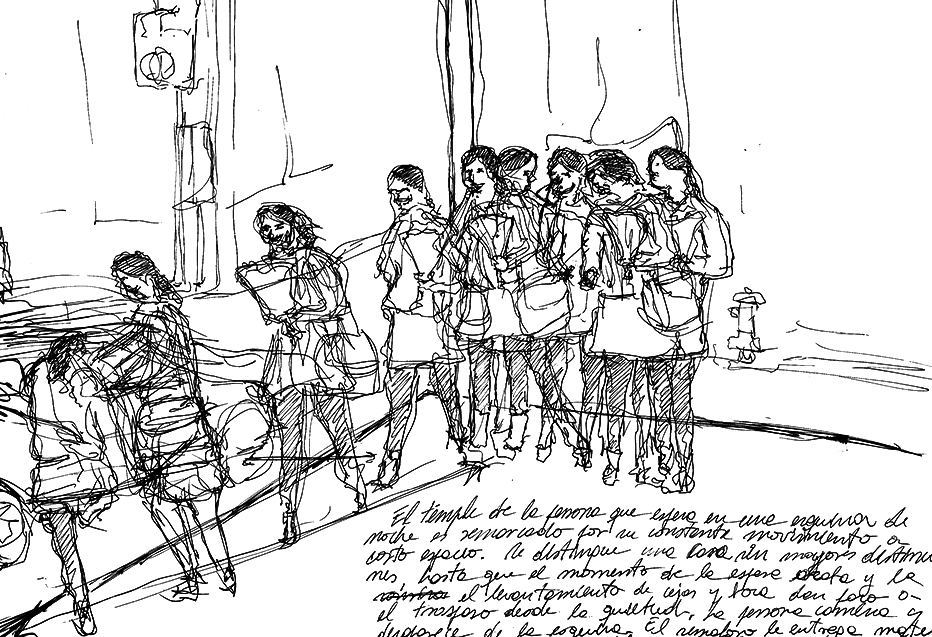 El temple de la persona que espera en una esquina de
noche es remarcado por su constante movimiento a
corto espacio. Se distingue una cara sin mayores distincio
nes, hasta que el momento de la espera acaba y la
el levantamiento de cejas y boca dan paso a
el traspaso desde la quietud. La persona camina y
desaparece de la esquina. El remate le entrega mate